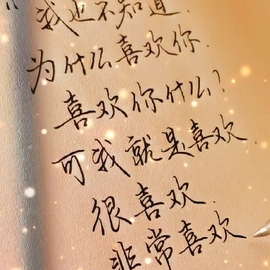 我也不知道.
为什么喜欢你.
喜欢你什么?
可我就是喜欢.
很喜欢.
非常喜欢